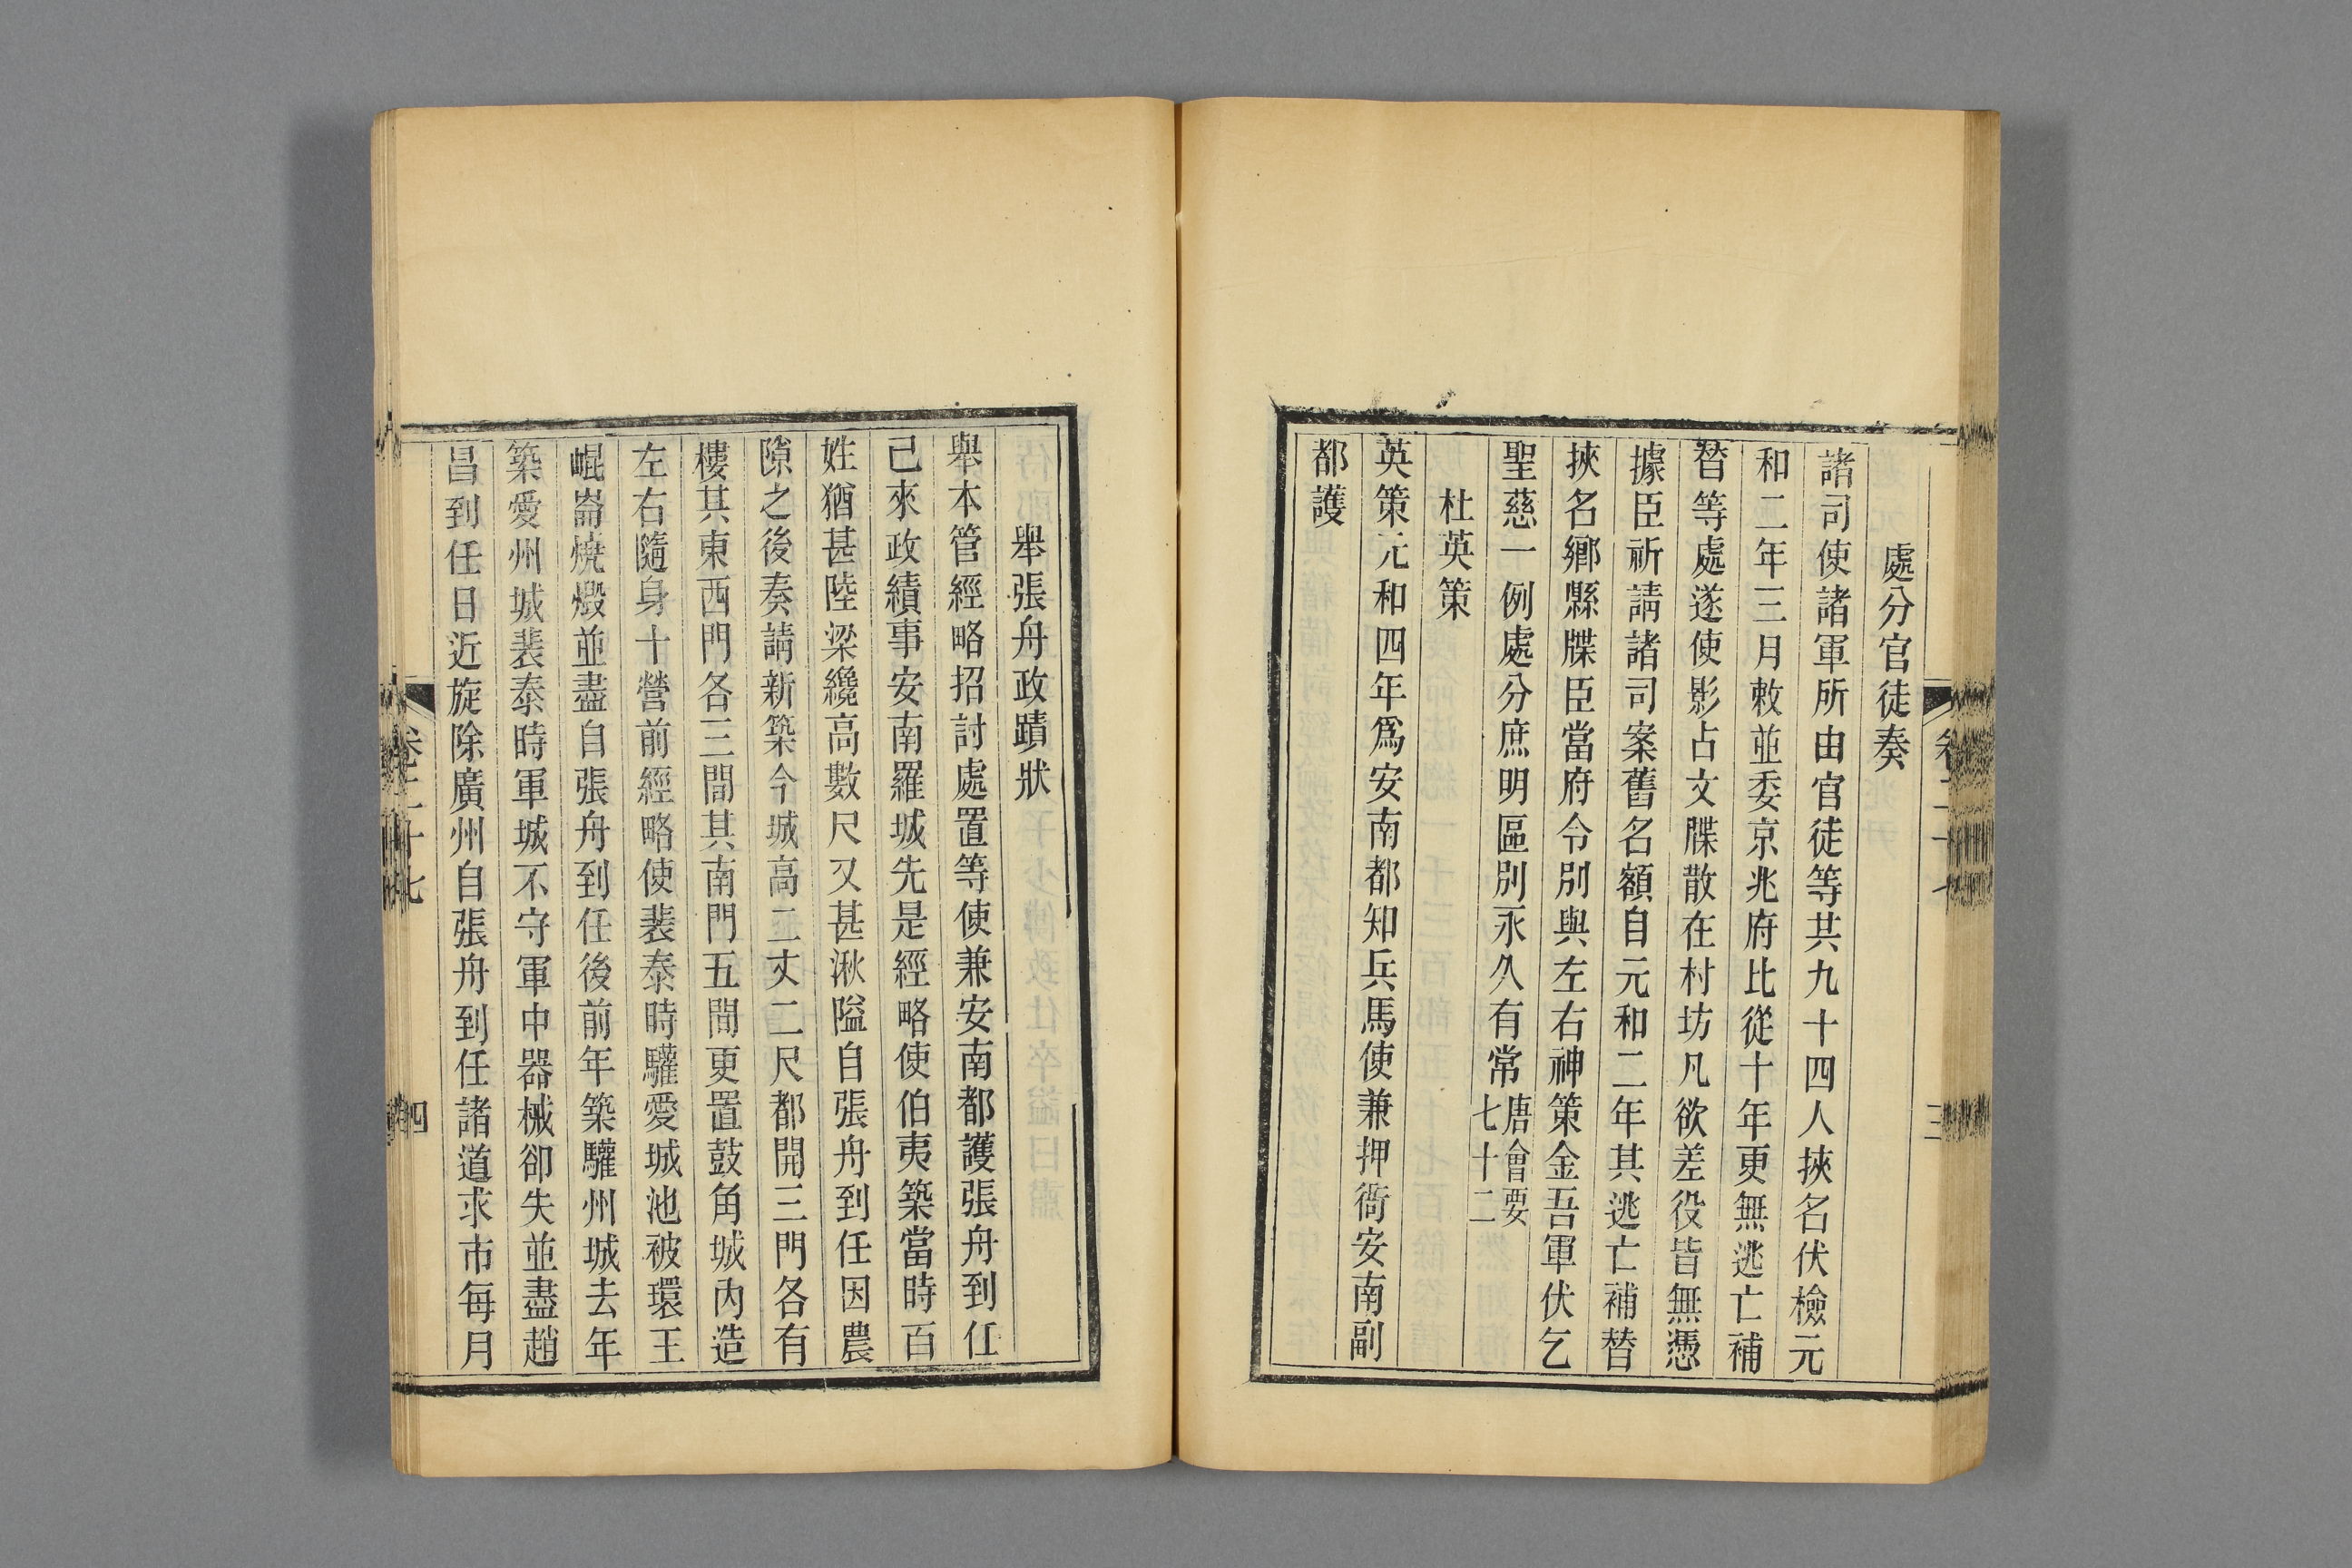 處分官徒奏
諸司使諸軍所由官徒等共九十四人挾名伏檢元
和二年三月敕並委京兆府比從十年更無逃亡補
替等處遂使影占文牒散在村坊凡欲差役皆無憑
據臣祈請諸司案舊名額自元和二年其逃亡補替
挾名鄉縣牒臣當府令別與左右神策金吾軍伏乞
聖慈一例處分庶明區別永久有常唐會要七十二
杜英策
英策元和四年爲安南都知兵馬使兼押衙安南副
都護
舉張舟政蹟狀
舉本管經略招討處置等使兼安南都護張舟到任
己來政績事安南羅城先是經略使伯夷築當時百
姓猶甚陸梁纔高數尺又甚湫隘自張舟到任因農
隙之後奏請新築今城高二丈二尺都開三門各有
樓其東西門各三間其南門五間更置鼓角城內造
左右隨身十營前經略使裴泰時驩愛城池被環王
崐崙燒燬並盡自張舟到任後前年築驩州城去年
築愛州城裴泰時軍城不守軍中器械卻失並盡趙
昌到任日近旋除廣州自張舟到任諸道求市每月
卷二十七
四